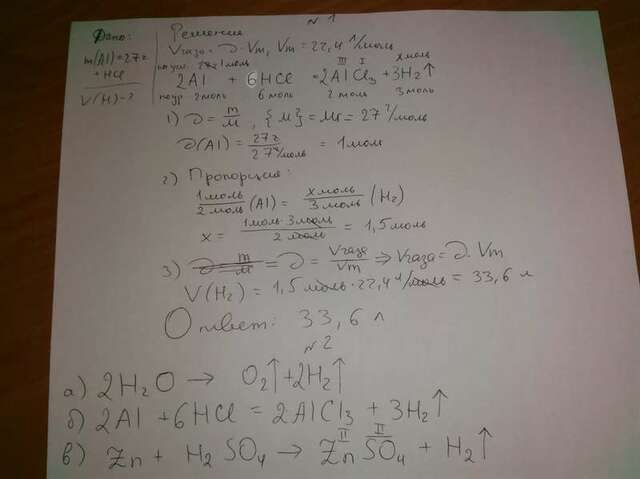 №1
Дано:
m(Al)=27г
+HCl
V(H)-?
Решение
Vгаза= ν·Vm, Vm=22,4 л/моль
по усл. 1моль x моль
2Al + 6HCl = 2AlCl3 + 3H2↑
III I
по ур. 2моль 6 моль 2 моль 3 моль
1) ν = m/M, {M} = Mr = 27 г/моль
ν(Al) = 27г/27г/моль = 1моль
2) Пропорция:
1моль/2моль (Al) = x моль/3 моль (H2)
x = 1моль·3моль/2 моль = 1,5 моль
3) ν = m/M = ν = Vгаза/Vm ⇒ Vгаза= ν·Vm
V(H2) = 1,5 моль·22,4 л/моль = 33,6 л
Ответ: 33,6 л
№2
а) 2H2O → O2↑+2H2↑
б) 2Al +6HCl = 2AlCl3 + 3H2↑
II II
в) Zn + H2SO4 → ZnSO4 + H2↑